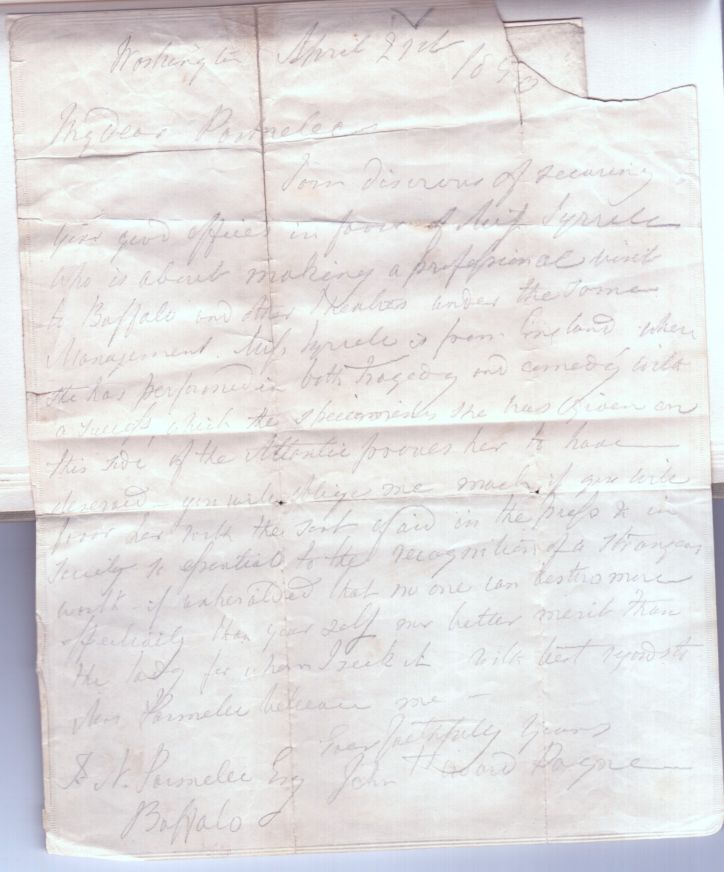 Washington April 27th 1850
My dear Parmelee
I am discrous of securing
your good offices in favor of Miss Tyrrell
who is about making a professional visit
to Buffalo and other Theatres under the same
Management. Miss Tyrrell is from England where
she has performed in both Tragedy and comedy with
a success which the specimens she has given on
this side of the Atlantic proves her to have
deserved – you will oblige me much if you will
favor her with the sort of aid in the press & in
society so essential to the recognition of a strangers
worth – if unheralded that no one can bestow more
effectively than your self nor better merit than
the lady for whom I seek it with best regards to
Mrs. Parmelee believe me –
Ever faithfully Yours
John Howard Payne
T. N. Parmelee Esq
Buffalo